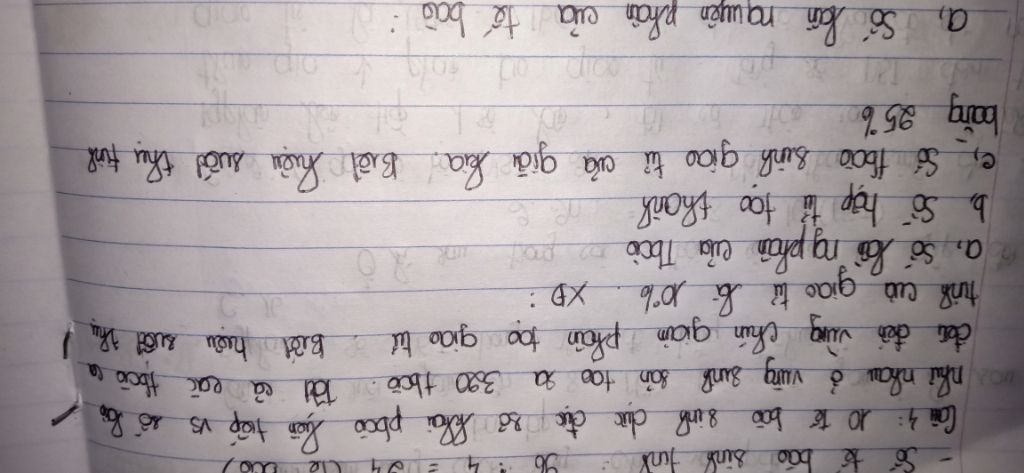 - Số tế bào sinh tinh: 96 : 4 = 24 (tế bào)
Câu 4: 10 tế bào sinh dục đực sơ khai pbào liên tiếp vs số lần
như nhau ở vùng sinh sản tạo ra 320 tbào. Tất cả các tbào ca
đều đến vùng chín giảm phân tạo giao tử. Biết hiệu suất thụ
tinh của giao tử là 10%. XĐ:
a, Số lần ng phân của Tbào
b, Số hợp tử tạo thành
c, Số tbào sinh giao tử của giới kia. Biết hiệu suất thụ tinh
bằng 25%
a, Số lần nguyên phân của tế bào: